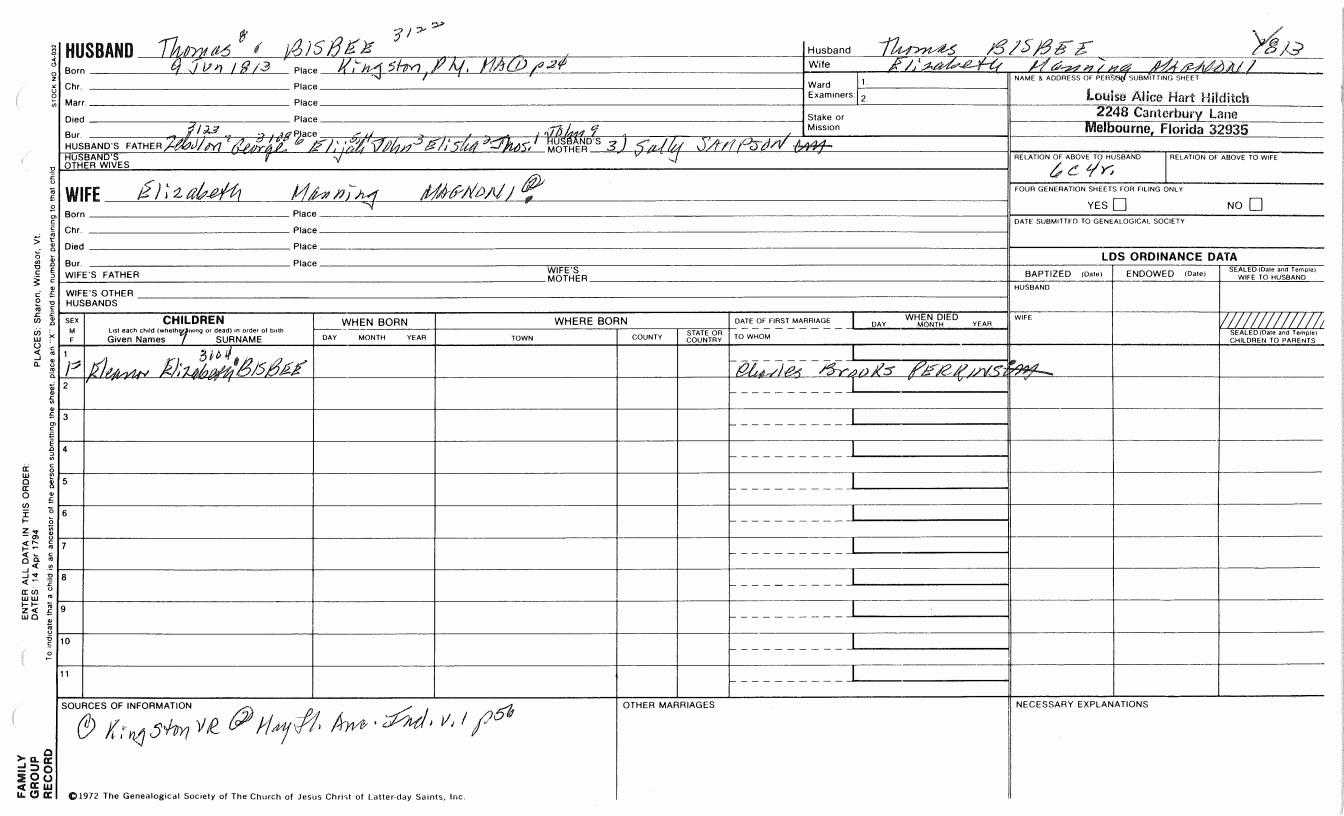 3122
HUSBAND Thomas 8 BISBEE
Born 9 Jun 1813 Place Kingston, PM. MA ① p24
Chr. Place
Marr. Place
Died Place
3123 3129 John 9
Bur. Place
HUSBAND'S FATHER George 6 Elijah 5 John 3 Elisha 2 Thos. 1 HUSBAND'S MOTHER 3) Sally SAMPSON
HUSBAND'S OTHER WIVES
Husband Thomas BISBEE 1813
Wife Elizabeth Manning MAGNONI
Ward Examiners: 1
2
Stake or Mission
NAME & ADDRESS OF PERSON SUBMITTING SHEET
Louise Alice Hart Hilditch
2248 Canterbury Lane
Melbourne, Florida 32935
RELATION OF ABOVE TO HUSBAND RELATION OF ABOVE TO WIFE
6C4r.
FOUR GENERATION SHEETS FOR FILING ONLY
YES NO
DATE SUBMITTED TO GENEALOGICAL SOCIETY
WIFE Elizabeth Manning MAGNONI ②
Born Place
Chr. Place
Died Place
Bur. Place
WIFE'S FATHER WIFE'S MOTHER
WIFE'S OTHER HUSBANDS
LDS ORDINANCE DATA
BAPTIZED (Date) ENDOWED (Date) SEALED (Date and Temple) WIFE TO HUSBAND
HUSBAND
WIFE
SEALED (Date and Temple) CHILDREN TO PARENTS
SEX M F
CHILDREN
List each child (whether living or dead) in order of birth
Given Names SURNAME
WHEN BORN
DAY MONTH YEAR
WHERE BORN
TOWN COUNTY STATE OR COUNTRY
DATE OF FIRST MARRIAGE
TO WHOM
WHEN DIED
DAY MONTH YEAR
3104
1 F Eleanor Elizabeth 9 BISBEE Charles Brooks PERRINS
2
3
4
5
6
7
8
9
10
11
SOURCES OF INFORMATION
① Kingston VR ② Hay Fl. Anc. Ind. v.1 p56
OTHER MARRIAGES
NECESSARY EXPLANATIONS
©1972 The Genealogical Society of The Church of Jesus Christ of Latter-day Saints, Inc.
STOCK NO. GA-032
PLACES: Sharon, Windsor, Vt.
ENTER ALL DATA IN THIS ORDER:
DATES: 14 Apr 1794
To indicate that a child is an ancestor of the person submitting the sheet, place an "X" behind the number pertaining to that child
FAMILY
GROUP
RECORD